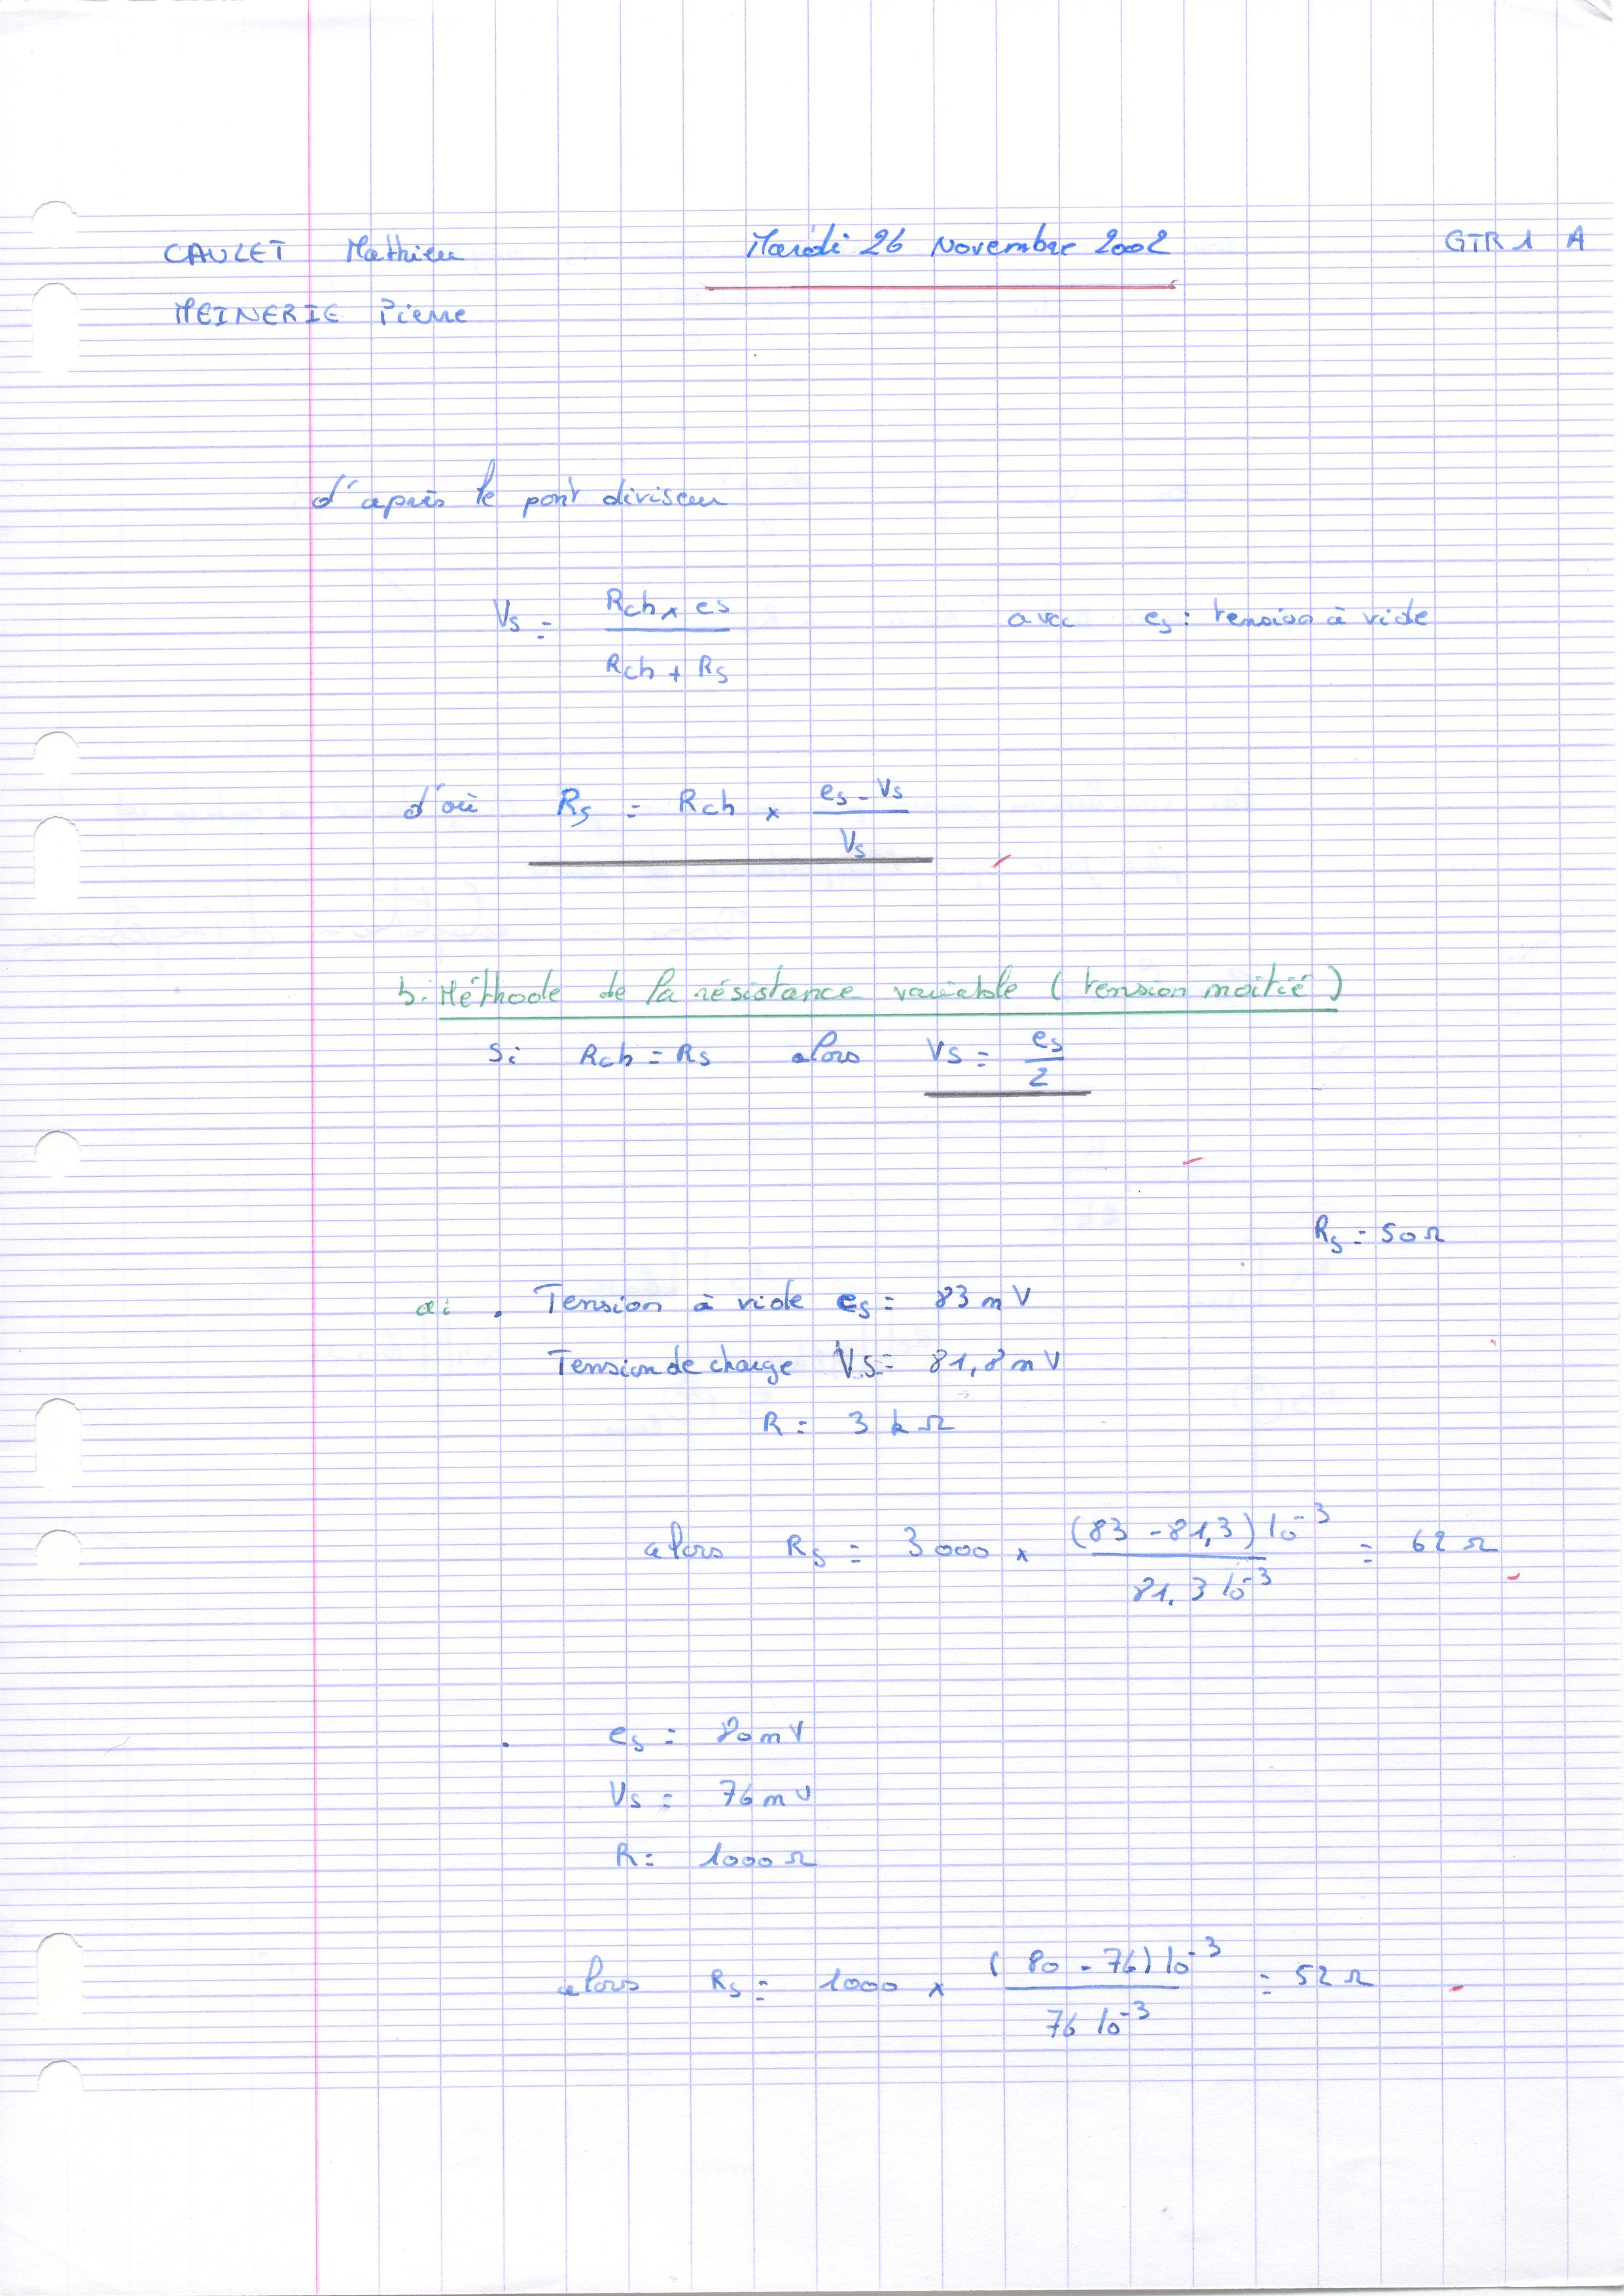 CAULET Mathieu
Mardi 26 Novembre 2002
GTR 1 A
MEINERIE Pierre
d'après le pont diviseur
Vs = (Rch x es) / (Rch + Rs) avec es : tension à vide
d'où Rs = Rch x (es - Vs) / Vs
b. Méthode de la résistance variable (tension moitié)
Si Rch = Rs alors Vs = es / 2
Rs = 50 Ω
a: . Tension à vide es = 83 mV
Tension de charge Vs = 81,8 mV
R = 3 kΩ
alors Rs = 3000 x (83 - 81,3) 10⁻³ / 81,3 10⁻³ = 62 Ω
. es = 80 mV
Vs = 76 mV
R = 1000 Ω
alors Rs = 1000 x (80 - 76) 10⁻³ / 76 10⁻³ = 52 Ω